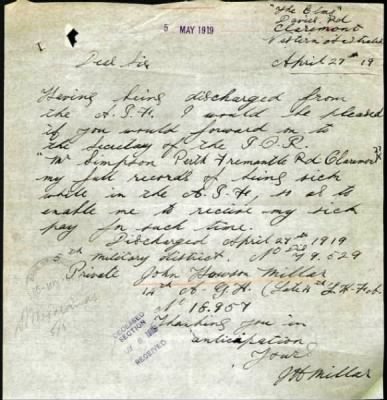 5 MAY 1919
"The Elms"
Davies Rd
Claremont
Western Australia
April 27th 19
Dear Sir
Having being discharged from
the A.I.F. I would be pleased
if you would forward on to
the secretary of the I.O.R.
"Mr Simpson Perth Fremantle Rd Claremont"
my full records of being sick
while in the A.I.F, so as to
enable me to receive my sick
pay for such time.
Discharged April 27th 1919
5th Military district. No 9.529
Private John Howson Millar
14th A.G.H. (Late 4th L.H. Fab
No 18.957
Thanking you in
anticipation
Yours
JH Millar
DECEASED
SECTION
RECEIVED